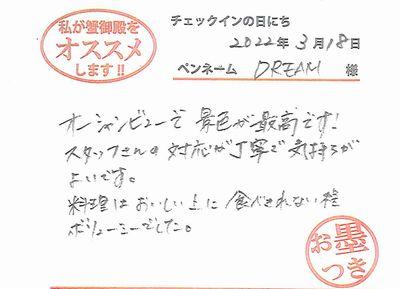 私が蟹御殿を
オススメ
します!!
チェックインの日にち
2022年 3月 18日
ペンネーム DREAM 様
オーシャンビューで 景色が最高です!
スタッフさんの対応が丁寧で気持ちが
よいです。
料理はおいしい上に 食べきれない程
ボリューミーでした。
お墨
つき